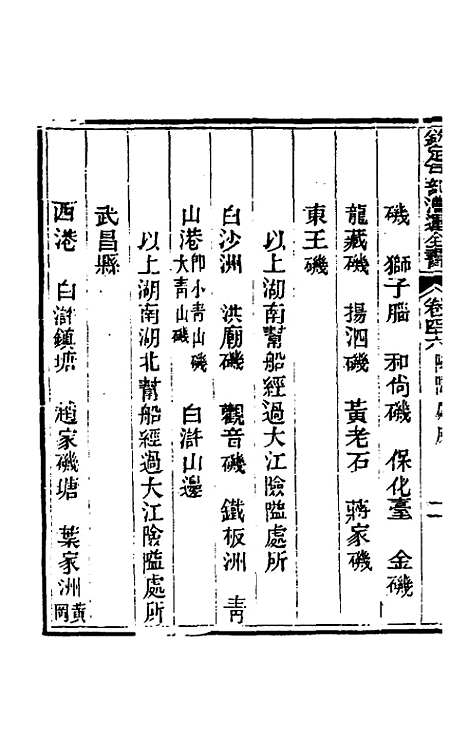 欽定戶部漕運全書 卷四十六 險隘處所
磯 獅子腦 和尚磯 保化臺 金磯
龍藏磯 揚泗磯 黃老石 蔣家磯
東王磯
以上湖南幫船經過大江險隘處所
白沙洲 洪廟磯 觀音磯 鐵板洲 青
山港即小青山磯大青山磯 白滸山邊
以上湖南湖北幫船經過大江險隘處所
武昌縣
西港 白滸鎮塘 趙家磯塘 葉家洲黃岡